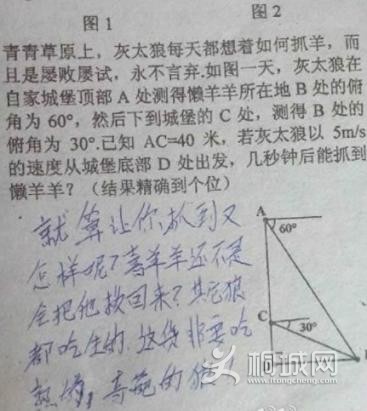 图1 图2
青青草原上，灰太狼每天都想着如何抓羊，而
且是屡败屡试，永不言弃.如图一天，灰太狼在
自家城堡顶部 A 处测得懒羊羊所在地 B 处的俯
角为 60°，然后下到城堡的 C 处，测得 B 处的
俯角为 30°.已知 AC=40 米，若灰太狼以 5m/s
的速度从城堡底部 D 处出发，几秒钟后能抓到
懒羊羊？（结果精确到个位）
就算让你抓到又
怎样呢？喜羊羊还不是
会把他救回来？其它狼
都吃生的，这货非要吃
熟的，奇葩的狼
A
60°
C
30°
桐城网
www.itongcheng.com